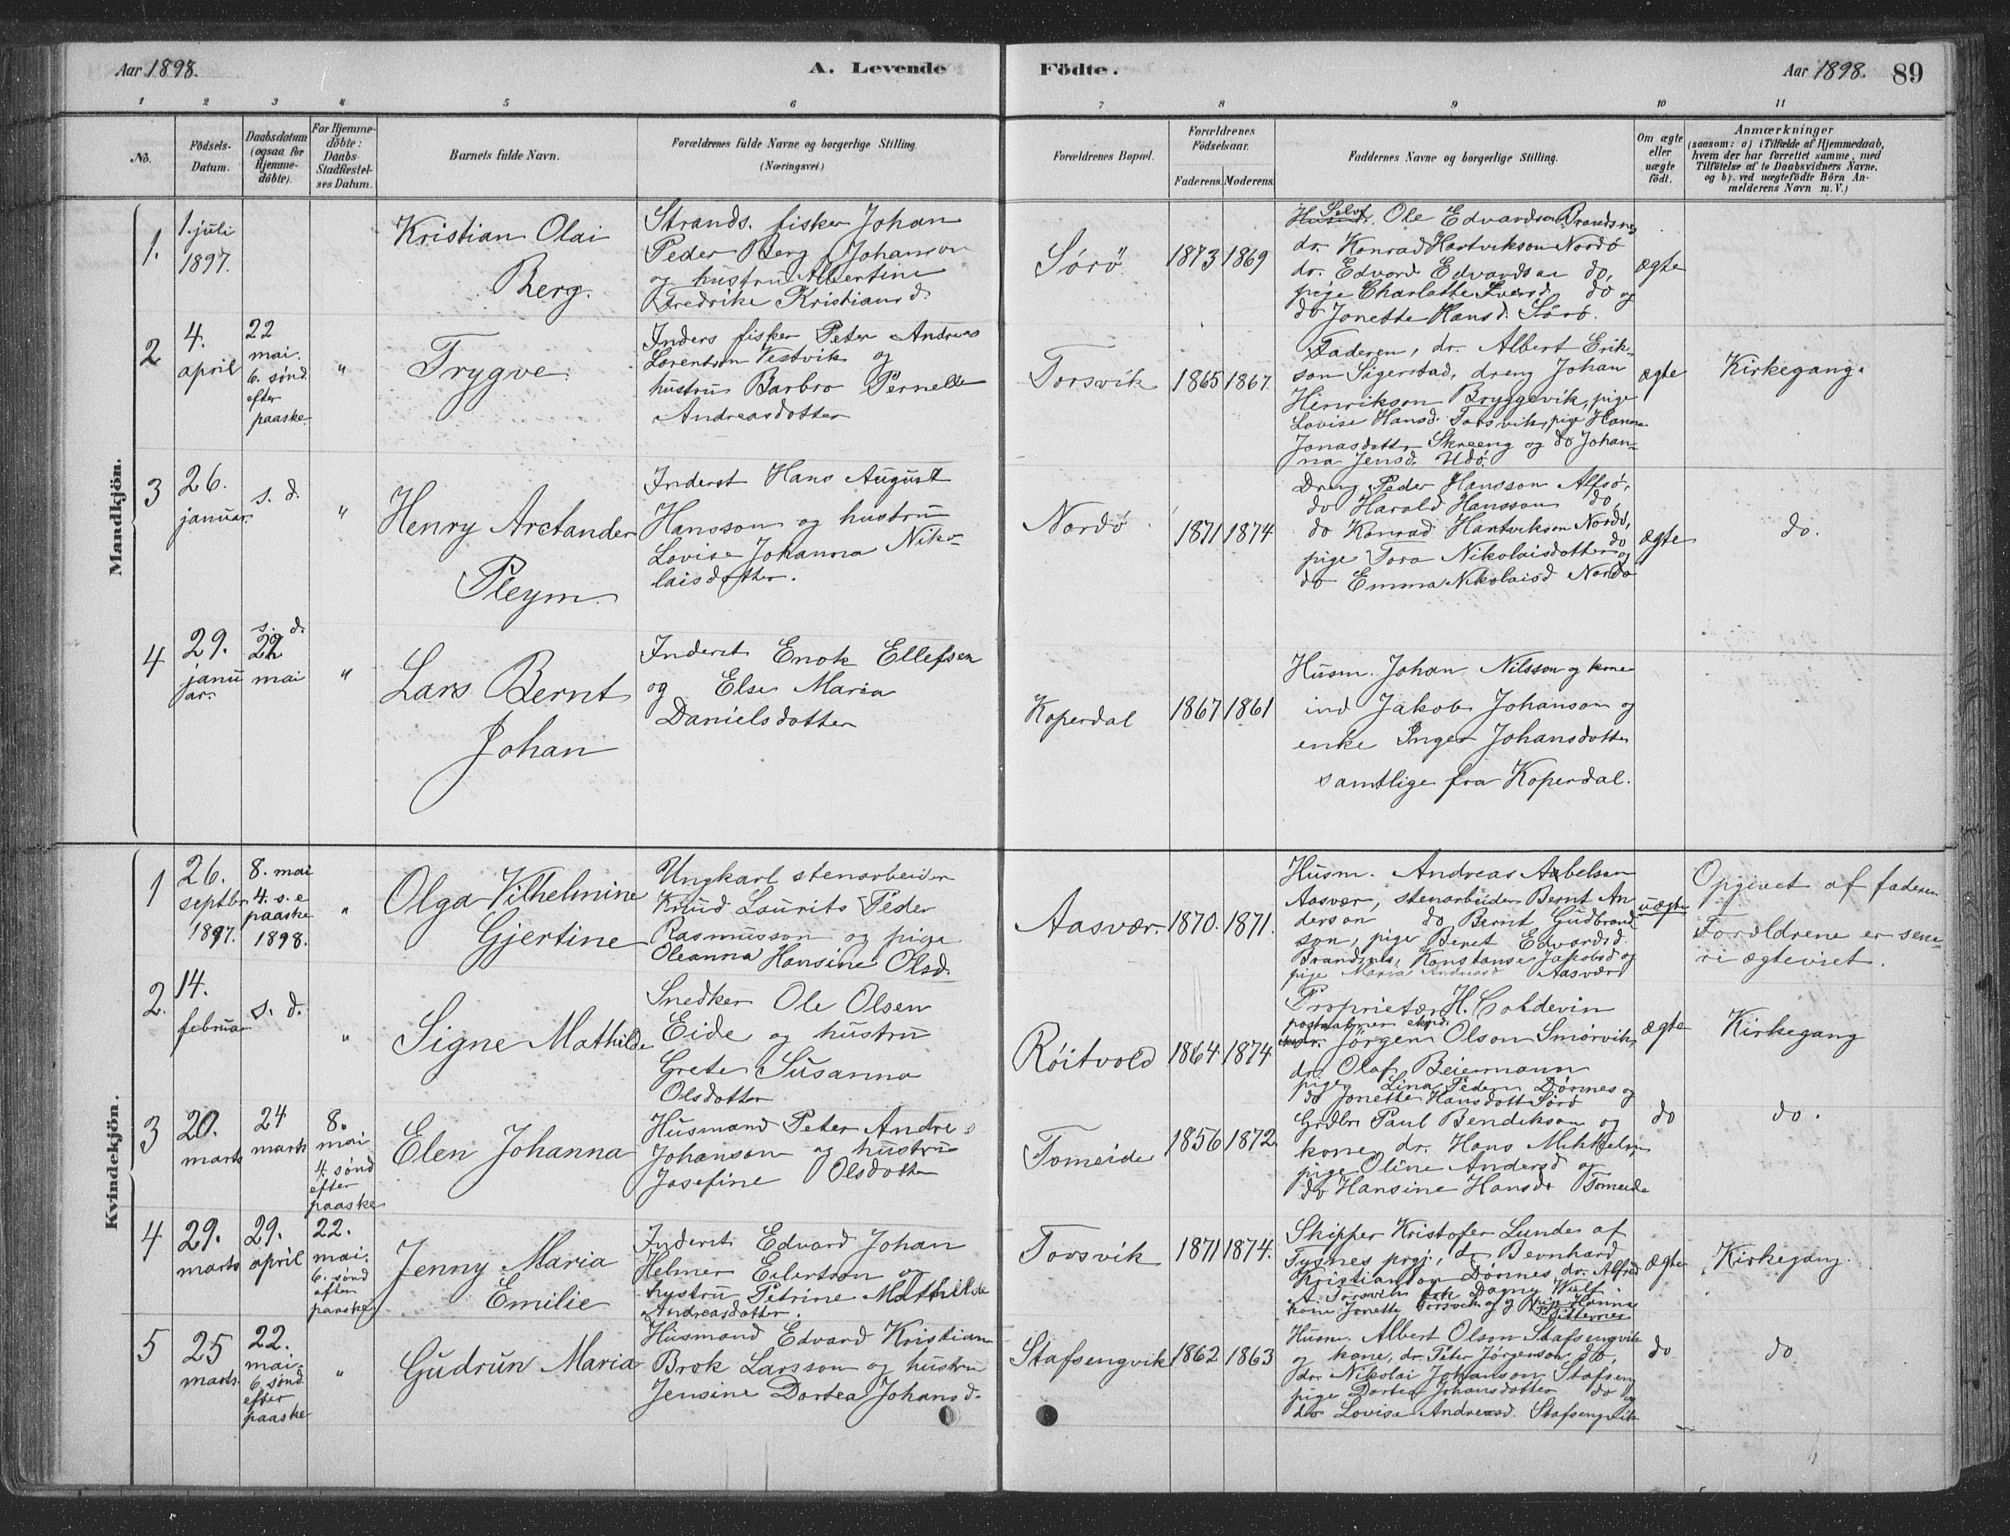 Aar 1898. A. Levende Födte. Aar 1898. 89
1 2 3 4 5 6 7 8 9 10 11
No.
Födsels-Datum.
Daabsdatum (ogsaa for Hjemmedöbte).
For Hjemmedöbte: Daabs-Stadfæstelses Datum.
Barnets fulde Navn.
Forældrenes fulde Navne og borgerlige Stilling. (Næringsvei.)
Forældrenes Bopæl.
Forældrenes Födselsaar.
Faderens. Moderens.
Faddernes Navne og borgerlige Stilling.
Om ægte eller uægte födt.
Anmærkninger
(saasom: a) i Tilfælde af Hjemmedaab,
hvem der har forrettet samme, med
Tilföielse af to Daabsvidners Navne,
og b) ved uægtefödte Börn Anmelderens Navn m. V.)
Mandkjön.
1.
1. juli
1897.
Kristian Olai
Berg.
Strands. fisker Johan
Peder Berg Johanson
og hustru Albertine
Fredrike Kristiansd.
Sørø
1873 1869
Selvf. Ole Edvardsen Brandsnes
dr. Konrad Hartvikson Nordø
dr. Edvard Edvardsen do,
pige Charlotte Iversd. do og
do Jonette Hansd. Sørø.
ægte
2
4.
april
22
mai.
6. sønd.
efter
paaske.
"
Trygve.
Inders fisker Peter Andreas
Lorentson Vestvik og
hustru Barbro Pernelle
Andreasdotter
Torsvik
1865 1867.
Faderen, dr. Albert Erik-
son Sigerstad, dreng Johan
Henrikson Bryggevik, pige
Lovise Hansd. Torsvik, pige Hanna
Jonasdotter Skreeng og do Johan-
na Jensd. Udø.
ægte
Kirkegang.
3
26.
januar.
s. d.
"
Henry Arctander
Pleym.
Inderst Hans August
Hansson og hustru
Lovise Johanna Niko-
laisdotter.
Nordø
1871 1874
Dreng Peder Hansson Alfsø,
do Harald Hansson do,
do Konrad Hartvikson Nordø,
pige Tora Nikolaisdotter do og
do Emma Nikolaisd Nordø
ægte
do.
4
29.
janu
ar.
s. d.
22
mai
"
Lars Bernt
Johan
Inderst Enok Ellefsen
og Else Maria
Danielsdotter
Koperdal
1867 1861
Husm. Johan Nilsson og kone
ind Jakob Johanson og
enke Inger Johansdotter
samtlige fra Koperdal.
Kvindekjön.
1
26.
septbr
1897.
8. mai
4. s. e
paaske
1898.
"
Olga Vilhelmine
Gjertine
Ungkarl stenarbeider
Knud Laurits Peder
Rasmusson og pige
Oleanna Hansine Olsd.
Aasvær.
1870. 1871.
Husm. Andreas Aabelson
Aasvær, stenarbeider Bernt An
derson do Bernt Gudbrand
son, pige Beret Edvardsd.
Brandsnes, Konstanse Jakobsd og
pige Maria Andreasd Aasvær
uægte
Opgivet af faderen
Forældrene er sene-
re ægteviet.
2.
14.
februar
s. d.
"
Signe Mathilde
Snedker Ole Olsen
Eide og hustru
Grete Susanna
Olsdotter
Røitvold
1864. 1874.
Proprietær H. Coldevin
Jørgen Olson Smørvik,
dr. Olaf Beiermann
pige Lina Peders Dørnes og
do Jonette Hansdott Sørø
ægte
Kirkegang
3
20.
marts
24
marts
8.
mai
4. sønd
efter
paaske
Elen Johanna
Husmand Peter Andreas
Johanson og hustru
Josefine Olsdotter
Tomeide
1856 1872.
Grdbr Paul Bendikson og
kone dr. Hans Mikkelson
pige Oline Andersd og
do Hansine Hansd. Tomeide
do
do.
4
29.
marts
29.
april
22.
mai.
6. sønd
efter
paaske.
Jenny Maria
Emilie
Inderst Edvard Johan
Helmer Eilertson og
hustru Petrine Mathilde
Andreasdotter.
Torsvik
1871 1874.
Skipper Kristofer Lunde af
Tysnes prgj, dr Bernhard
Kristianson Dørnes dr. Alfred
A. Torsvik Dagny Wulf
kone Jonette Torsvik og pige Hanna
ægte
Kirkegang.
5
25
marts.
22.
mai.
6. sønd
efter
paaske
"
Gudrun Maria
Husmand Edvard Kristian
Brok Larsson og hustru
Jensine Dortea Johansd.
Stafsengvik
1862 1863
Husm. Albert Olson Stafsengvik
og kone, dr. Peter Jørgenson do,
dr. Nikolai Johanson Stafseng
pige Dortea Johansdotter do og
do Lovise Andreasd. Stafsengvik
do
do